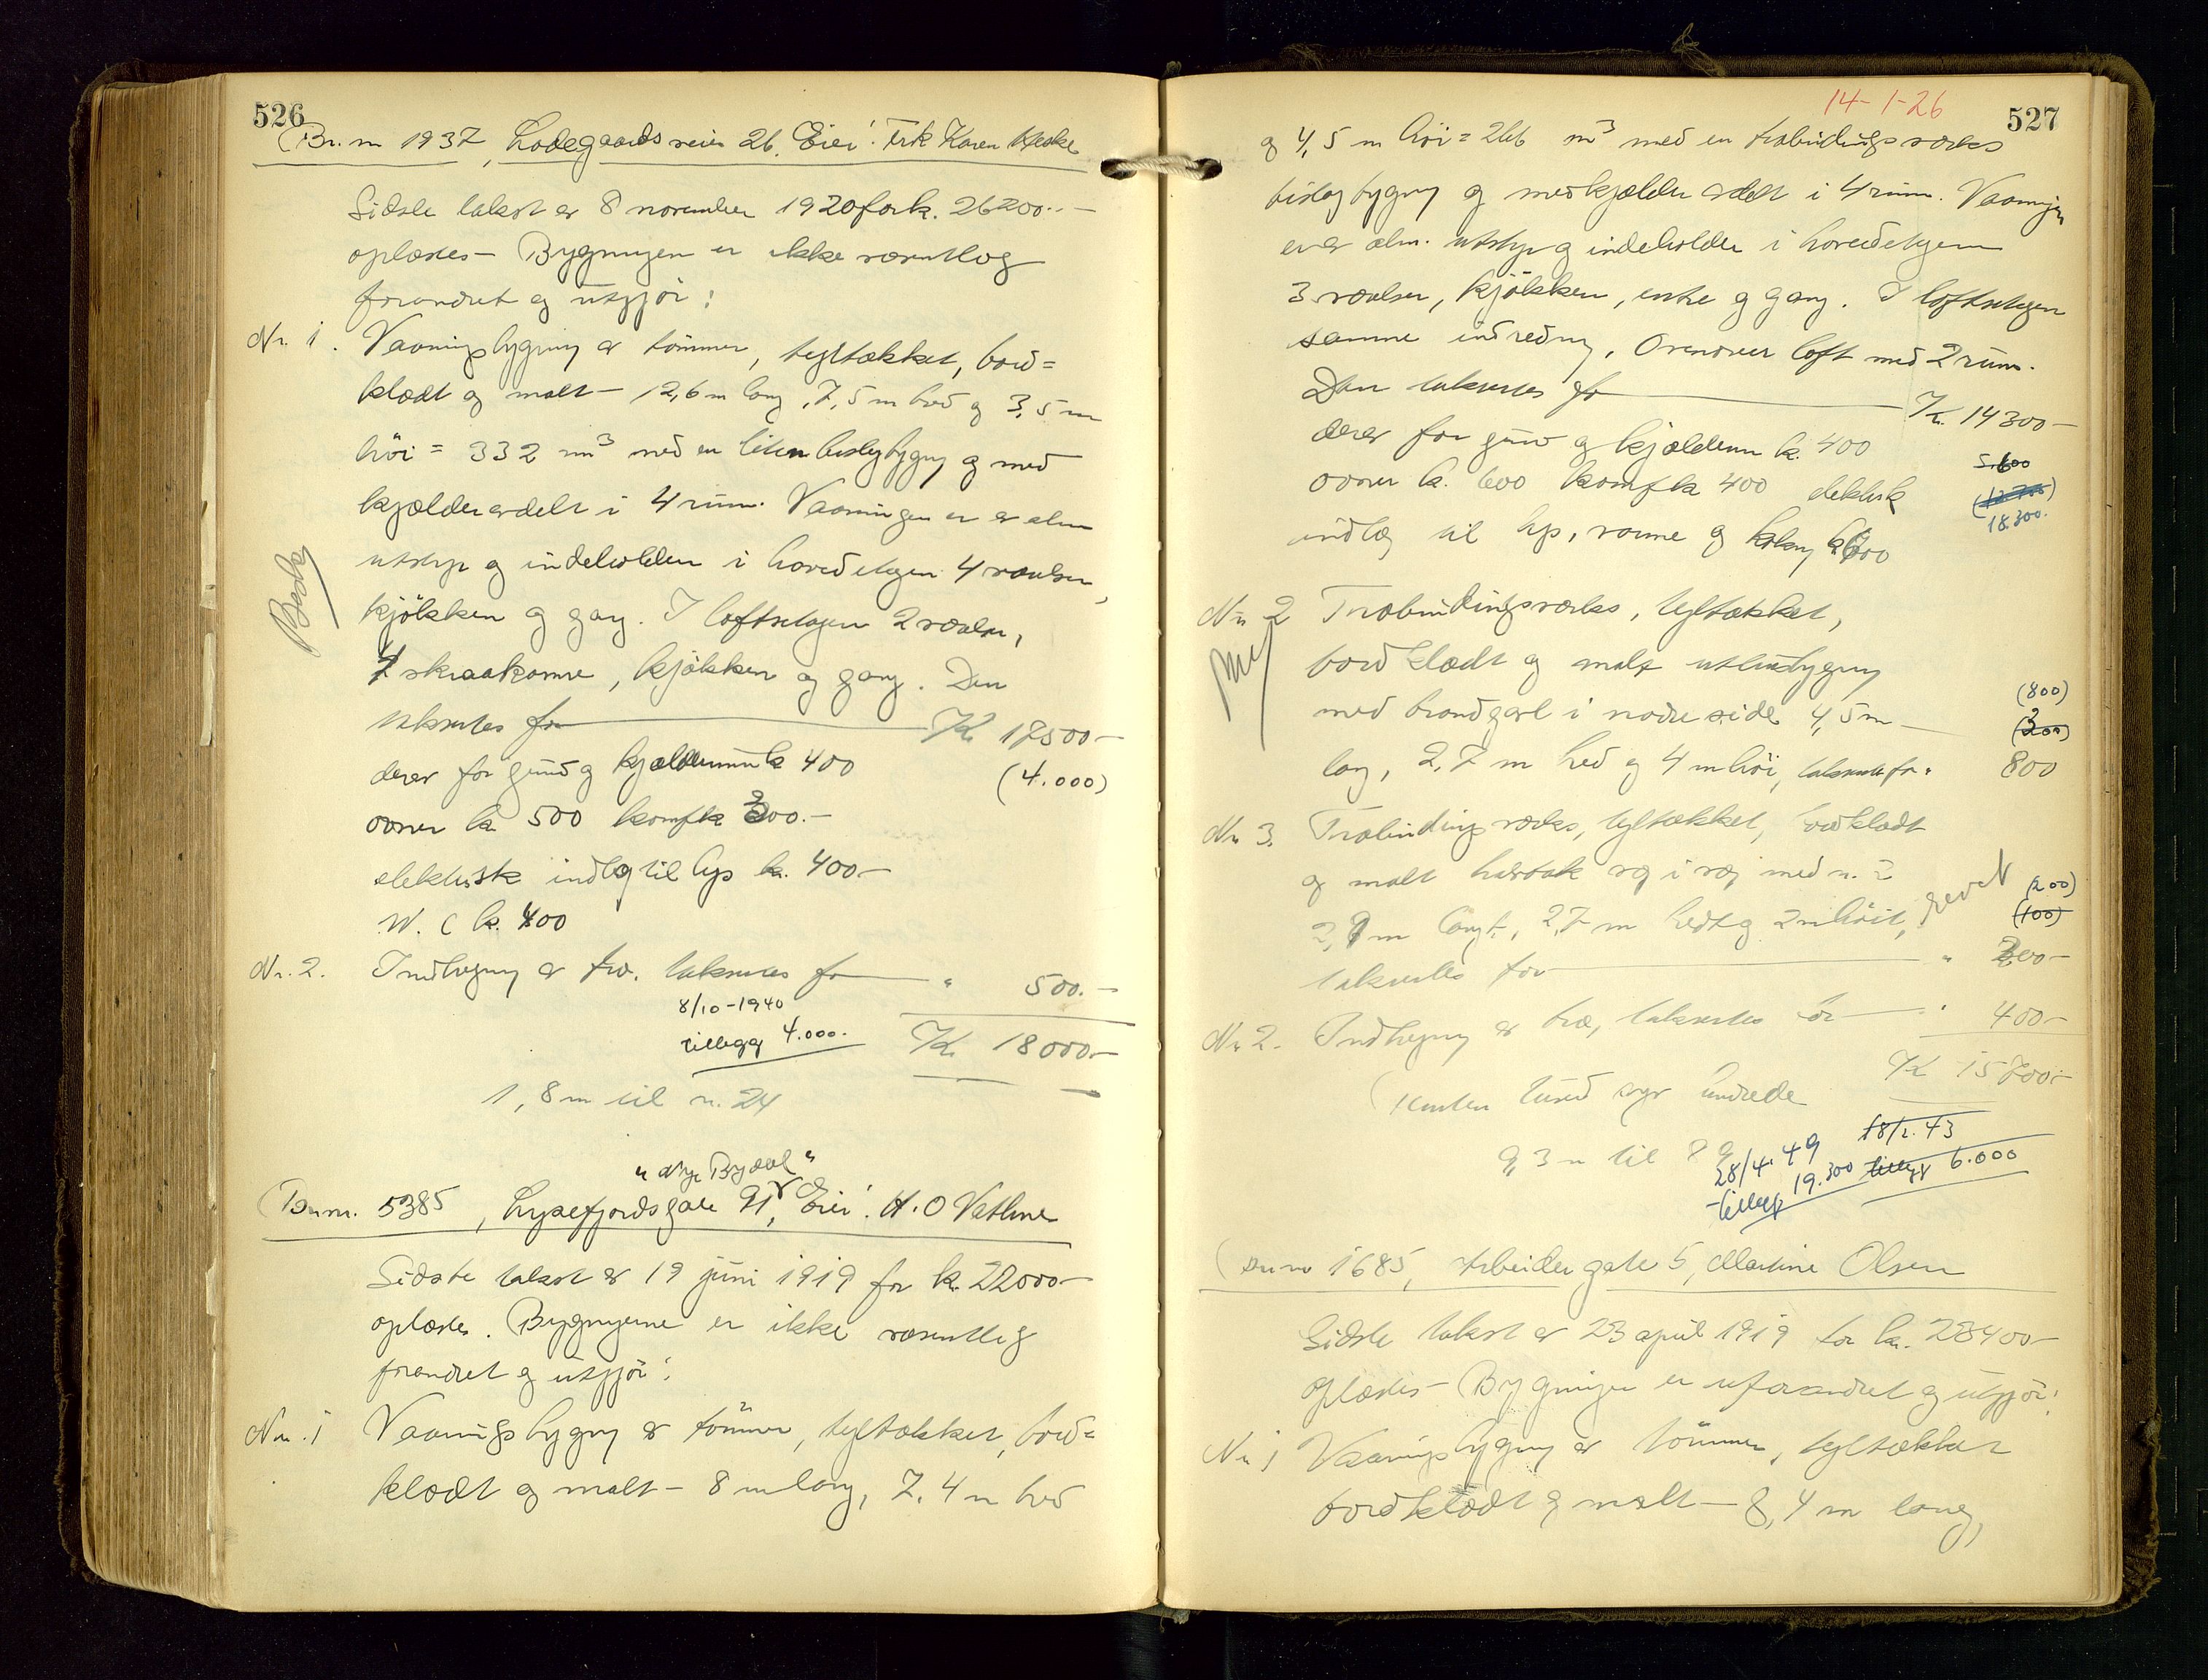 526
Br. nr 1937, Ladegaardsveien 26. Eier: Frk Karen
Sidste takst av 8 november 1920 for k. 26200.-
oplæstes - Bygningen er ikke væsentlig
forandret og utgjør:
Nr. 1. Vaaningsbygning av tømmer, tegltækket, bord=
klædt og malt - 12,6 m lang, 7,5 m bred og 3,5 m
høi = 332 m³ med en liten bislagbygng og med
kjælder avdelt i 4 rum. Vaaningen er av alm
utstyr og indeholder i hovedetagen 4 værelser,
kjøkken og gang. I loftsetagen 2 værelser,
4 skraakamre, kjøkken og gang. Den
takseres for Kr 17500-
derav for grund og kjælderrum k 400 (4.000)
ovner k. 500 komf k 300.-
elektrisk indlæg til lys k. 400-
W. C k. 400
Nr. 2. Indhegning av træ. takseres for " 500.-
8/10-1940
tillegg 4.000.- Kr 18000-
1,8 m til n. 24
"Nye Bydal"
Br. nr. 5385, Lysefjordsgate 91, Eier: H. O Vathne
Sidste takst av 19 juni 1919 for k. 22000-
oplæstes. Bygningerne er ikke væsentlig
forandret og utgjør:
Nr. 1 Vaaningsbygning av tømmer, tegltækket, bord=
klædt og malt - 8 m lang, 7.4 m bred
14-1-26
527
og 4,5 m høi = 266 m³ med en træbindingsværks
bislagbygning og med kjælder avdelt i 4 rum. Vaaningen
er av alm. utstyr og indeholder i hovedetagen
3 værelser, kjøkken, entre og gang. I loftsetagen
samme indredning. Ovenover loft med 2 rum.
Den takseres for Kr. 14300-
derav for grund og kjælderrum k. 400
5.600
ovner k. 600 komf k 400 elektrisk
18.300.
indlæg til lys, varme og kokning k 600
Nr 2 Træbindingsværks, tegltækket,
bordklædt og malt uthusbygning
(800)
med brandgavl i nordre side 4,5 m
(300)
lang, 2,7 m bred og 4 m høi, takseres for " 800
Nr 3. Træbindingsværks, tegltækket, bordklædt
og malt halvtak væg i væg med n. 2
(200)
2,9 m langt, 2,7 m bredt og 2 m høit, revet
(100)
takseres for " 200-
Nr 2. Indhegning av træ, takseres for " 400-
Kr 15700.-
(femten tused syv hundrede
9,3 m til 89
18/2.43
28/4.49
tillegg 6.000
tillegg 19.300
Br nr 1685, Arbeidergate 5, Martine Olsen
Sidste takst av 23 april 1919 for k. 23400-
oplæstes - Bygningen er uforandret og utgjør:
Nr 1 Vaaningsbygning av tømmer, tegltækket
bordklædt og malt - 8,4 m lang,